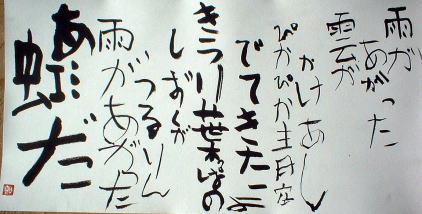 雨が
あがった
雲が
かけあし
ぴかぴか主月空
でてきたよ
きらり葉っぱの
しずくが
つるりん
雨があがった
あに
虹だ